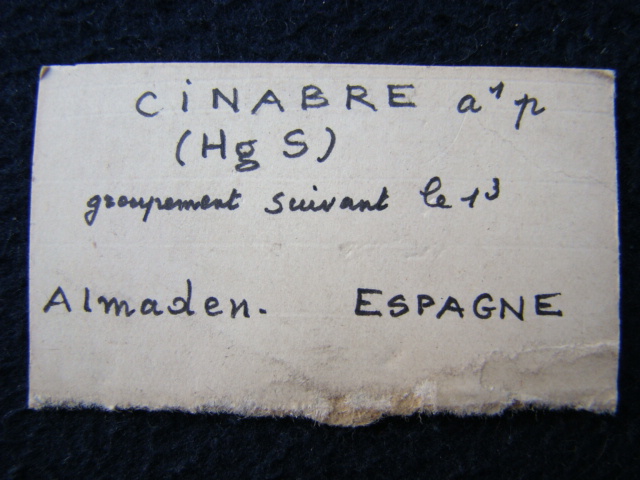 CINABRE a¹ p
(Hg S)
groupement suivant le 1³
Almaden. ESPAGNE